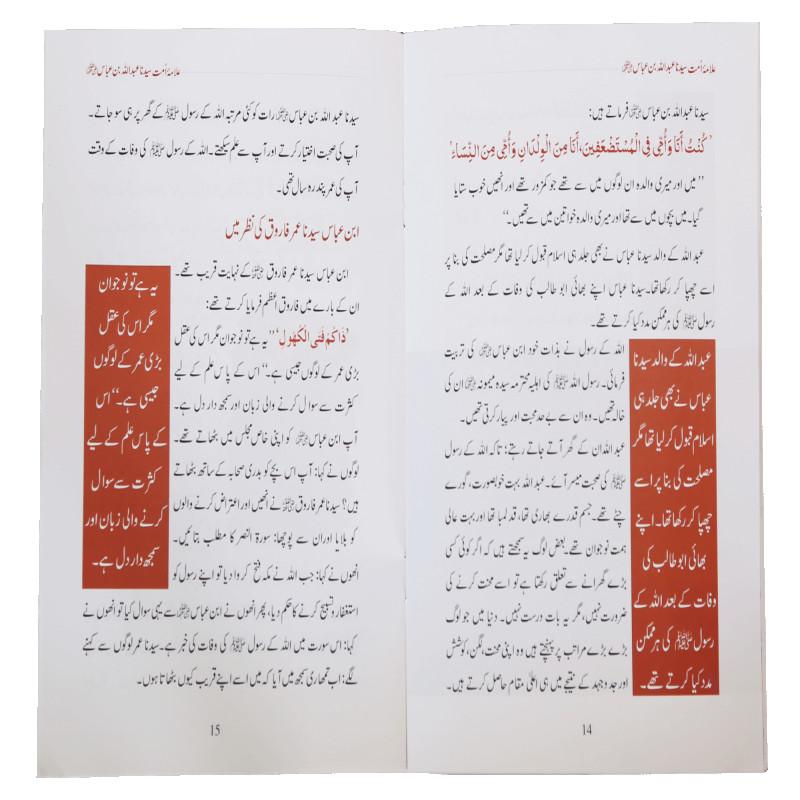 علامۂ اُمت سیدنا عبداللہ بن عباس ؓ
سیدنا عبداللہ بن عباس ؓ فرماتے ہیں:
’کُنْتُ أَنَا وَأُمِّی فِی الْمُسْتَضْعَفِینَ، أَنَا مِنَ الْوِلْدَانِ وَأُمِّی مِنَ النِّسَاءِ‘
’’میں اور میری والدہ ان لوگوں میں سے تھے جو کمزور تھے اور انھیں خوب ستایا
گیا۔ میں بچوں میں سے تھا اور میری والدہ خواتین میں سے تھیں۔‘‘
عبداللہ کے والد سیدنا عباس نے بھی جلد ہی اسلام قبول کر لیا تھا مگر مصلحت کی بنا پر
اسے چھپا کر رکھا تھا۔ سیدنا عباس اپنے بھائی ابو طالب کی وفات کے بعد اللہ کے
رسول ﷺ کی ہر ممکن مدد کیا کرتے تھے۔
اللہ کے رسول نے بذات خود ابن عباس کی تربیت
فرمائی۔ رسول اللہ ﷺ کی اہلیہ محترمہ سیدہ میمونہ ؓ ان کی
خالہ تھیں۔ وہ ان سے بے حد محبت اور پیار کرتی تھیں۔
عبداللہ ان کے گھر آتے جاتے رہتے؛ تاکہ اللہ کے رسول
ﷺ کی صحبت میسر آئے۔ عبداللہ بہت خوبصورت، گورے
چٹے تھے۔ جسم قدرے بھاری تھا، قد لمبا تھا اور بہت عالی
ہمت نوجوان تھے۔ بعض لوگ یہ سمجھتے ہیں کہ اگر کوئی کسی
بڑے گھرانے سے تعلق رکھتا ہے تو اسے محنت کرنے کی
ضرورت نہیں، مگر یہ بات درست نہیں۔ دنیا میں جو لوگ
بڑے بڑے مراتب پر پہنچتے ہیں وہ اپنی محنت، لگن، کوشش
اور جد وجہد کے نتیجے میں ہی اعلیٰ مقام حاصل کرتے ہیں۔
عبداللہ کے والد سیدنا
عباس نے بھی جلد ہی
اسلام قبول کر لیا تھا مگر
مصلحت کی بنا پر اسے
چھپا کر رکھا تھا۔ اپنے
بھائی ابو طالب کی
وفات کے بعد اللہ کے
رسول ﷺ کی ہر ممکن
مدد کیا کرتے تھے۔
14
علامۂ اُمت سیدنا عبداللہ بن عباس ؓ
سیدنا عبداللہ بن عباس ؓ رات کو کئی مرتبہ اللہ کے رسول ﷺ کے گھر پر ہی سو جاتے۔
آپ کی صحبت اختیار کرتے اور آپ سے علم سیکھتے۔ اللہ کے رسول ﷺ کی وفات کے وقت
آپ کی عمر پندرہ سال تھی۔
ابن عباس سیدنا عمر فاروق کی نظر میں
ابن عباس سیدنا عمر فاروق ؓ کے نہایت قریب تھے۔
ان کے بارے میں فاروق اعظم فرمایا کرتے تھے:
’ذَاکُمْ فَتَی الْکُھُولِ‘ ’’یہ ہے تو نوجوان مگر اس کی عقل
بڑی عمر کے لوگوں جیسی ہے۔‘‘ اس کے پاس علم کے لیے
کثرت سے سوال کرنے والی زبان اور سمجھ دار دل ہے۔
آپ ابن عباس ؓ کو اپنی خاص مجلس میں بٹھاتے تھے۔
لوگوں نے کہا: آپ اس بچے کو بدری صحابہ کے ساتھ بٹھاتے
ہیں؟ سیدنا عمر فاروق ؓ نے انھیں اور اعتراض کرنے والوں
کو بلایا اور ان سے پوچھا: سورۃ النصر کا مطلب بتائیں۔
انھوں نے کہا: جب اللہ نے مکہ فتح کروا دیا تو اپنے رسول کو
استغفار و تسبیح کرنے کا حکم دیا، پھر انھوں نے ابن عباس ؓ سے یہی سوال کیا تو انھوں نے
کہا: اس سورت میں اللہ کے رسول ﷺ کی وفات کی خبر ہے۔ سیدنا عمر لوگوں سے کہنے
لگے: اب تمھاری سمجھ میں آیا کہ میں اسے اپنے قریب کیوں بٹھاتا ہوں۔
یہ ہے تو نوجوان
مگر اس کی عقل
بڑی عمر کے لوگوں
جیسی ہے۔‘‘ اس
کے پاس علم کے لیے
کثرت سے سوال
کرنے والی زبان اور
سمجھ دار دل ہے۔
15